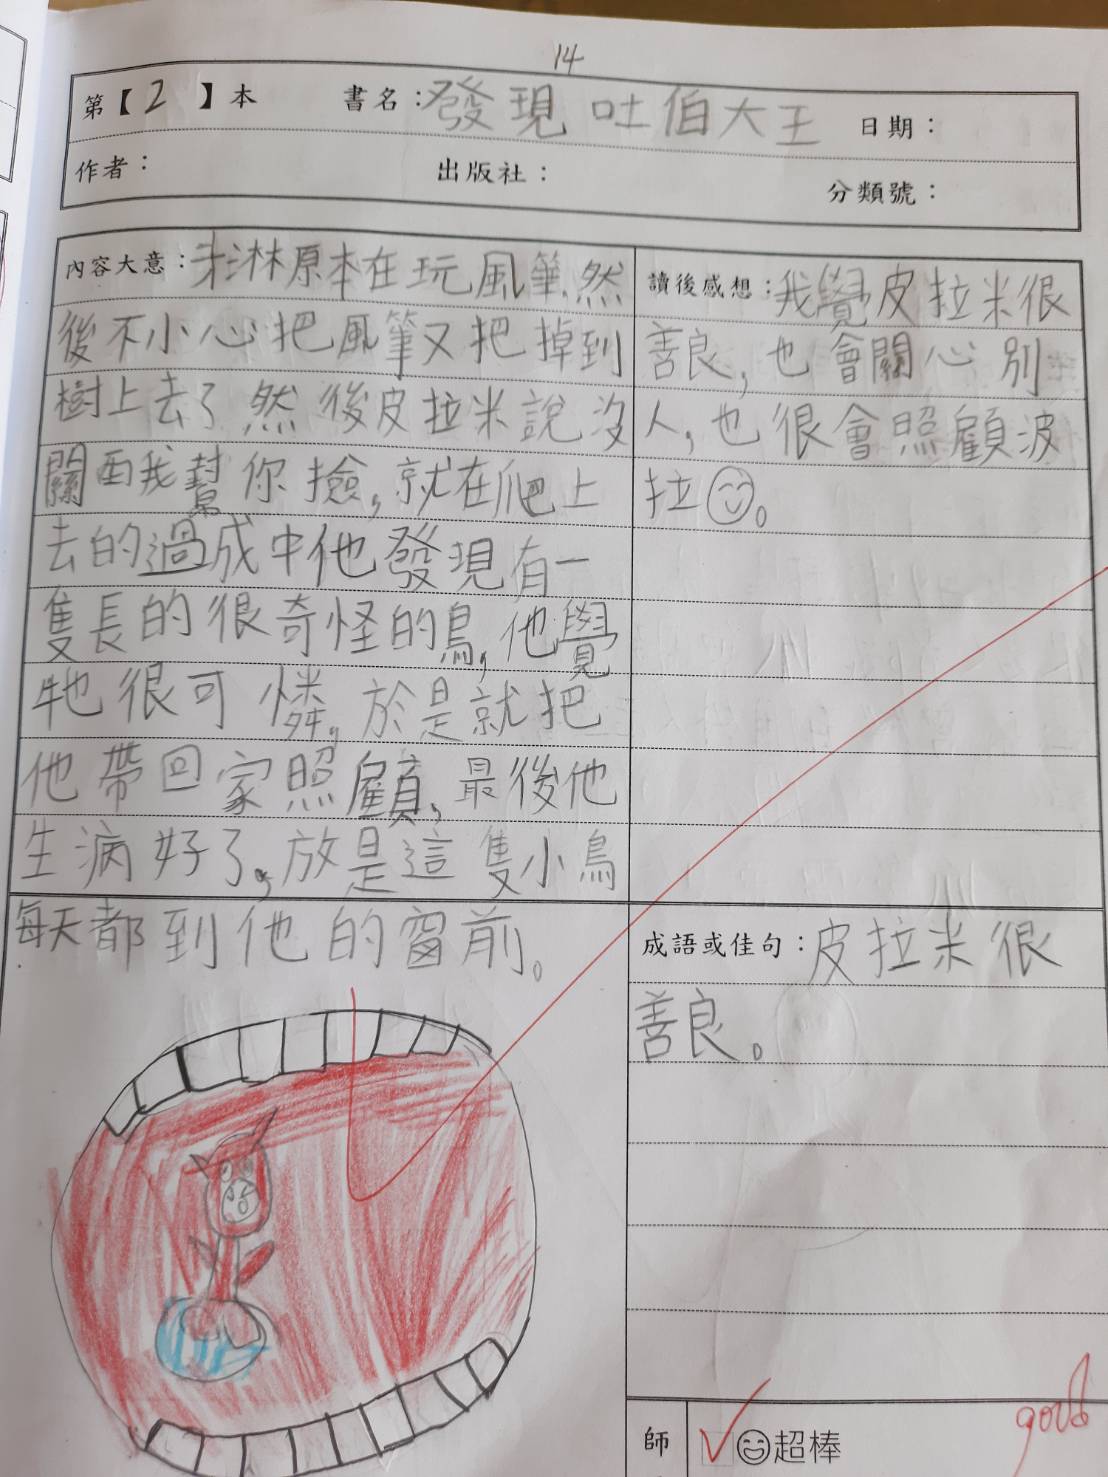 14
第【2】本 書名：發現吐伯大王 日期：
作者： 出版社： 分類號：
內容大意：淋原本在玩風箏,然
後不小心把風箏又把掉到
樹上去了然後皮拉米說沒
關西我幫你撿,就在爬上
去的過成中他發現有一
隻長的很奇怪的鳥,他覺
牠很可憐,於是就把
他帶回家照顧,最後他
生病好了,放是這隻小鳥
每天都到他的窗前。
讀後感想：我覺皮拉米很
善良,也會關心別
人,也很會照顧波
拉。
成語或佳句：皮拉米很
善良。
師 超棒
good